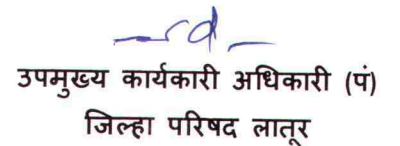 -sd-
उपमुख्य कार्यकारी अधिकारी (पं)
जिल्हा परिषद लातूर